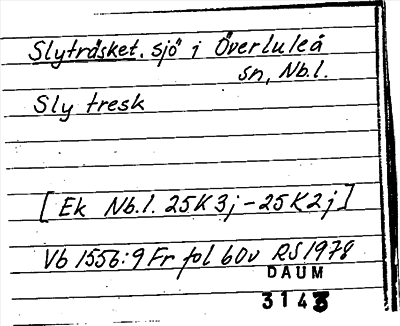 Slyträsket. sjö i Överluleå
sn, Nb.l.
Sly tresk
[Ek Nb.l. 25K3j-25K2j]
Vb 1556:9 Fr fol 60v RS1978
DAUM
3143